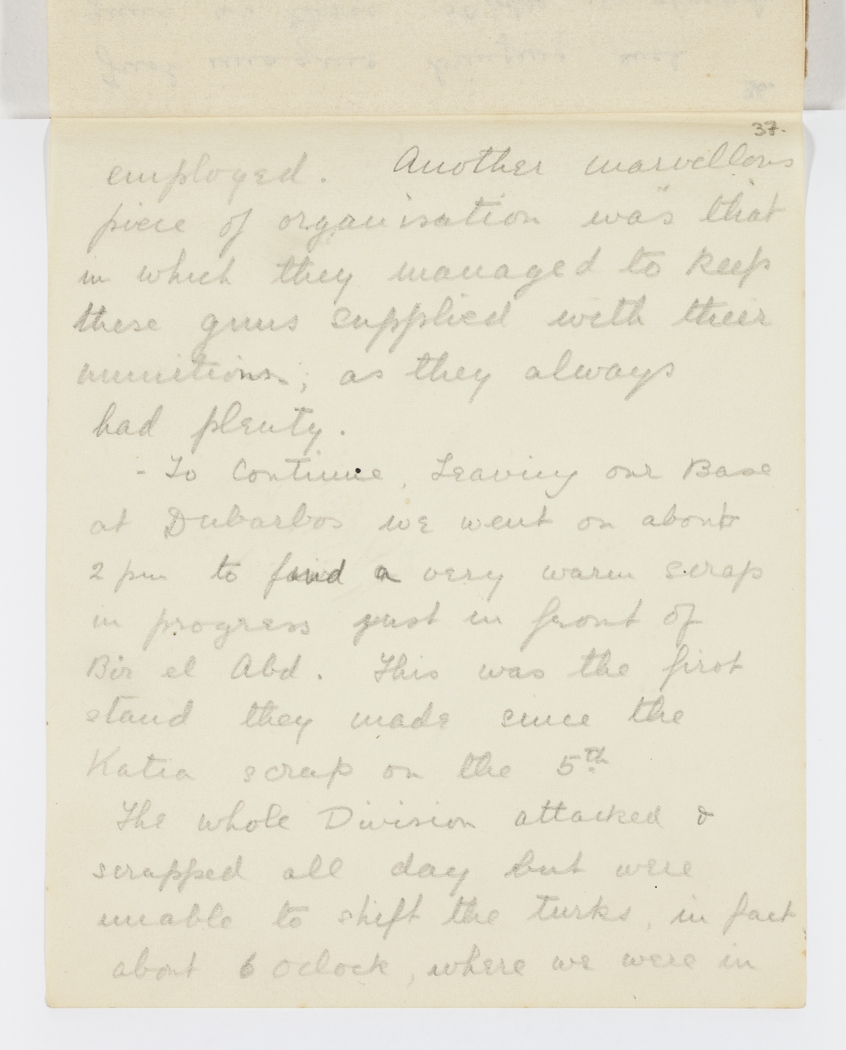 37.
employed. Another marvellous
piece of organisation was that
in which they managed to keep
these guns supplied with their
munitions, as they always
had plenty.
- To Continue, Leaving our Base
at Dubarbos we went on about
2 pm to find a very warm scrap
in progress just in front of
Bir el Abd. This was the first
stand they made since the
Katia scrap on the 5th
The whole Division attacked &
scrapped all day but were
unable to shift the turks, in fact
about 6 oclock, where we were in